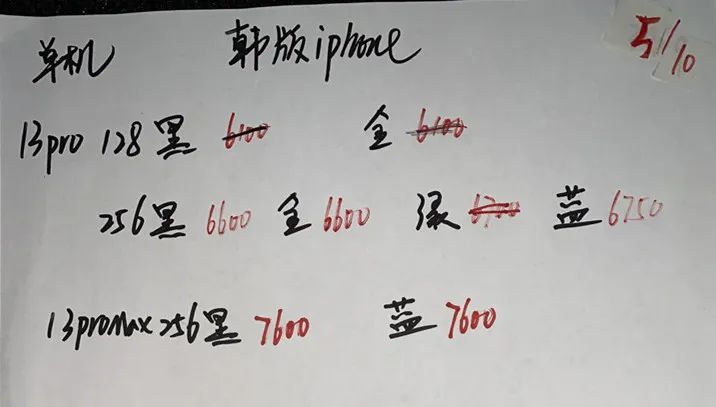 单机 韩版iphone 5/10
13pro 128黑 6100 金 6100
256黑 6600 金 6600 绿 6700 蓝 6750
13promax256黑 7600 蓝 7600